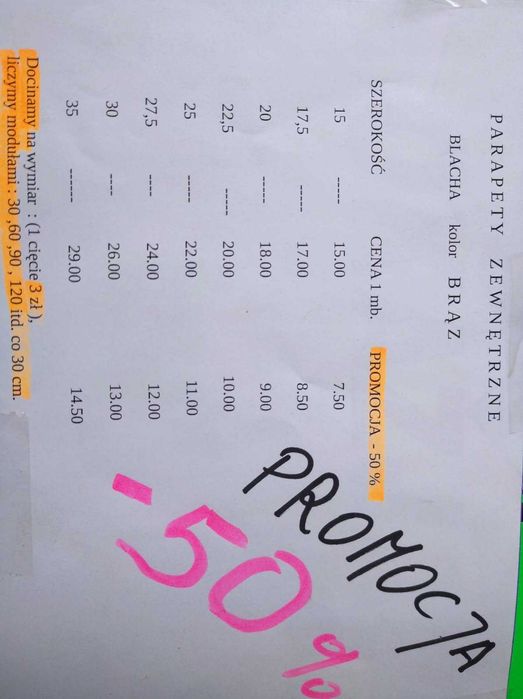 PARAPETY ZEWNĘTRZNE
BLACHA kolor BRĄZ
SZEROKOŚĆ CENA 1 mb. PROMOCJA - 50 %
15 ----- 15.00 7.50
17,5 ----- 17.00 8.50
20 ----- 18.00 9.00
22,5 ----- 20.00 10.00
25 ----- 22.00 11.00
27,5 ---- 24.00 12.00
30 ---- 26.00 13.00
35 ------ 29.00 14.50
Docinamy na wymiar : (1 cięcie 3 zł ),
liczymy modułami : 30 ,60 ,90 , 120 itd. co 30 cm.
PROMOCJA
-50%